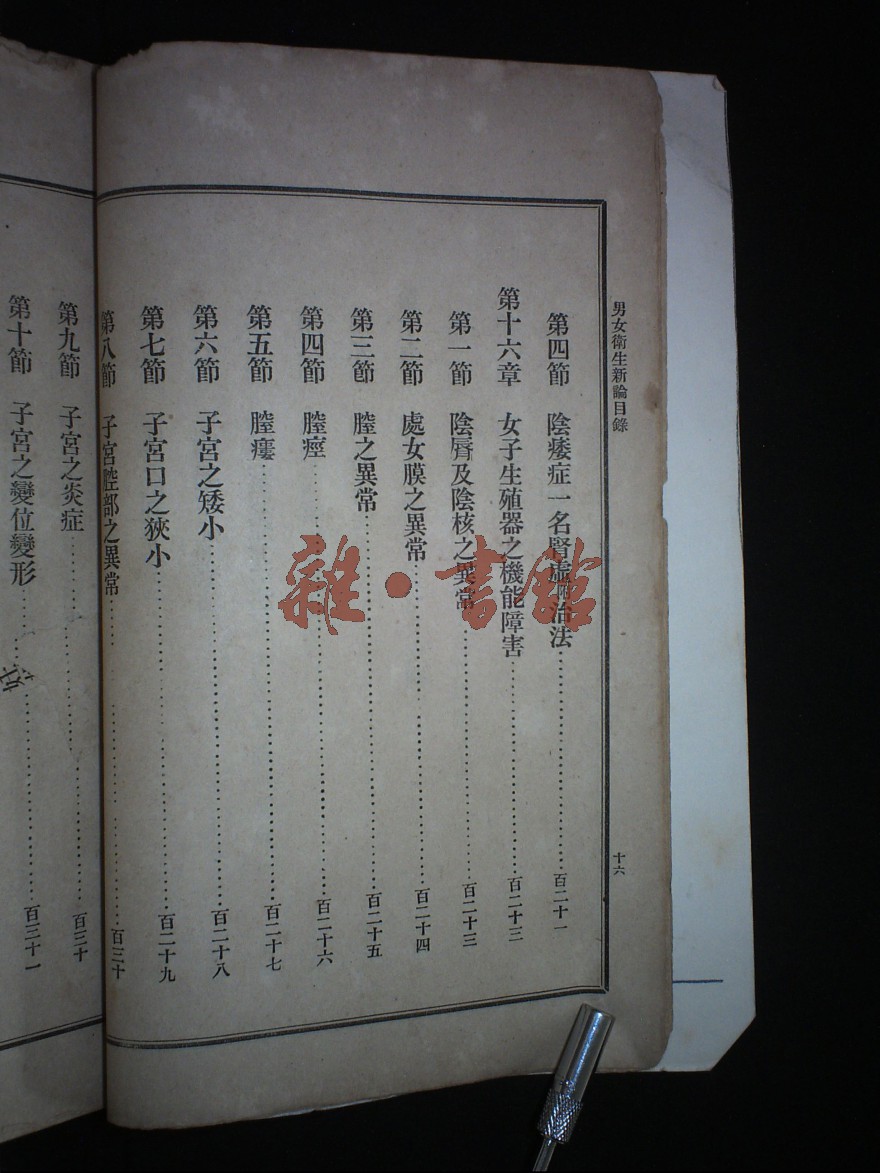 男女衛生新論目錄
十六
第四節 陰痿症一名腎虛治法 百二十一
第十六章 女子生殖器之機能障害 百二十三
第一節 陰唇及陰核之異常 百二十三
第二節 處女膜之異常 百二十四
第三節 膣之異常 百二十五
第四節 膣痙 百二十六
第五節 膣瘻 百二十七
第六節 子宮之矮小 百二十八
第七節 子宮口之狹小 百二十九
第八節 子宮腔部之異常 百三十
第九節 子宮之炎症 百三十
第十節 子宮之變位變形 百三十一
雜·書館